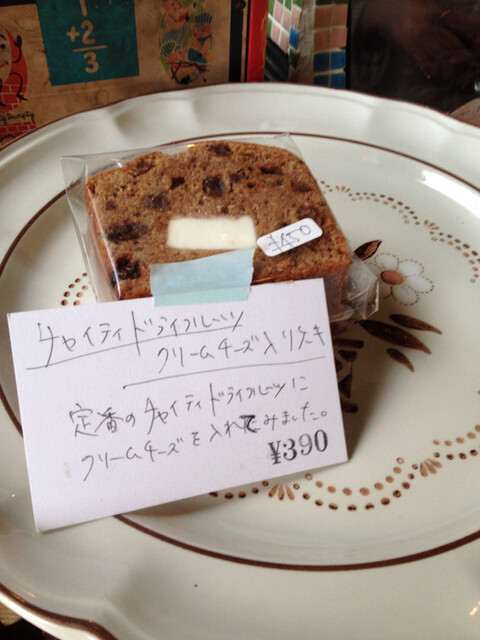 1
+2
3
y Dumpty
¥450
チャイティドライフルーツ
クリームチーズ入りケーキ
定番のチャイティドライフルーツに
クリームチーズを入れてみました。
¥390